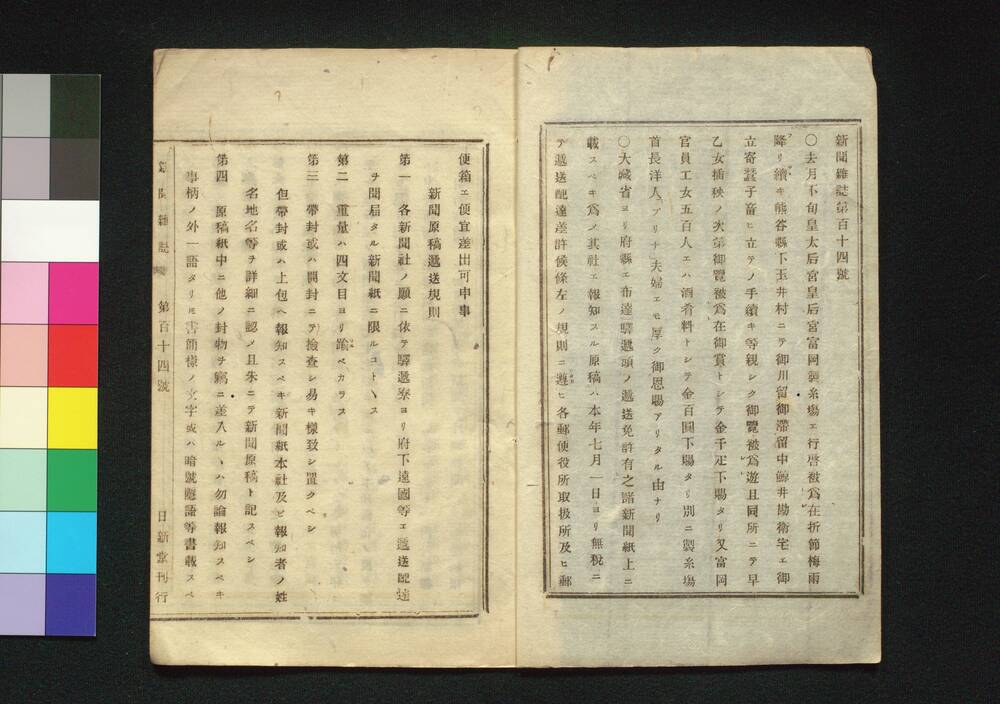 新聞雜誌第百十四號
〇去月下旬皇太后宮皇后宮富岡製糸場エ行啓被爲在折節梅雨
降リ續キ熊谷縣下玉井村ニテ御川留御滯留中鯨井勘衛宅エ御
立寄蠶子畜ヒ立テノ手續キ等親シク御覽被爲遊且同所ニテ早
乙女插秧ノ次第御覽被爲在御賞トシテ金千疋下賜タリ又富岡
官員工女五百人エハ酒肴料トシテ金百圓下賜タリ別ニ製糸場
首長洋人ブリナ夫婦エモ厚ク御恩賜アリタル由ナリ
〇大藏省ヨリ府縣エ布達驛遞頭ノ遞送免許有之諸新聞紙上ニ
載スベキ爲メ其社エ報知スル原稿ハ本年七月一日ヨリ無税ニ
テ遞送配達差許候條左ノ規則ニ遵ヒ各郵便役所取扱所及ヒ郵
便箱エ便宜差出可申事
新聞原稿遞送規則
第一 各新聞社ノ願ニ依テ驛遞寮ヨリ府下遠國等エ遞送配達
ヲ聞届タル新聞紙ニ限ルコトヽス
第二 重量ハ四文目ヨリ踰ベカラス
第三 帶封或ハ開封ニテ檢査シ易キ樣致シ置クベシ
但帶封或ハ上包ヘ報知スベキ新聞紙本社及ビ報知者ノ姓
名地名等ヲ詳細ニ認メ且朱ニテ新聞原稿ト記スベシ
第四 原稿紙中ニ他ノ封物ヲ竊ニ差入ルヽハ勿論報知スベキ
事柄ノ外一語タリモ書簡樣ノ文字或ハ暗號隱語等書載スベ
新聞雜誌 第百十四號 日新堂刊行